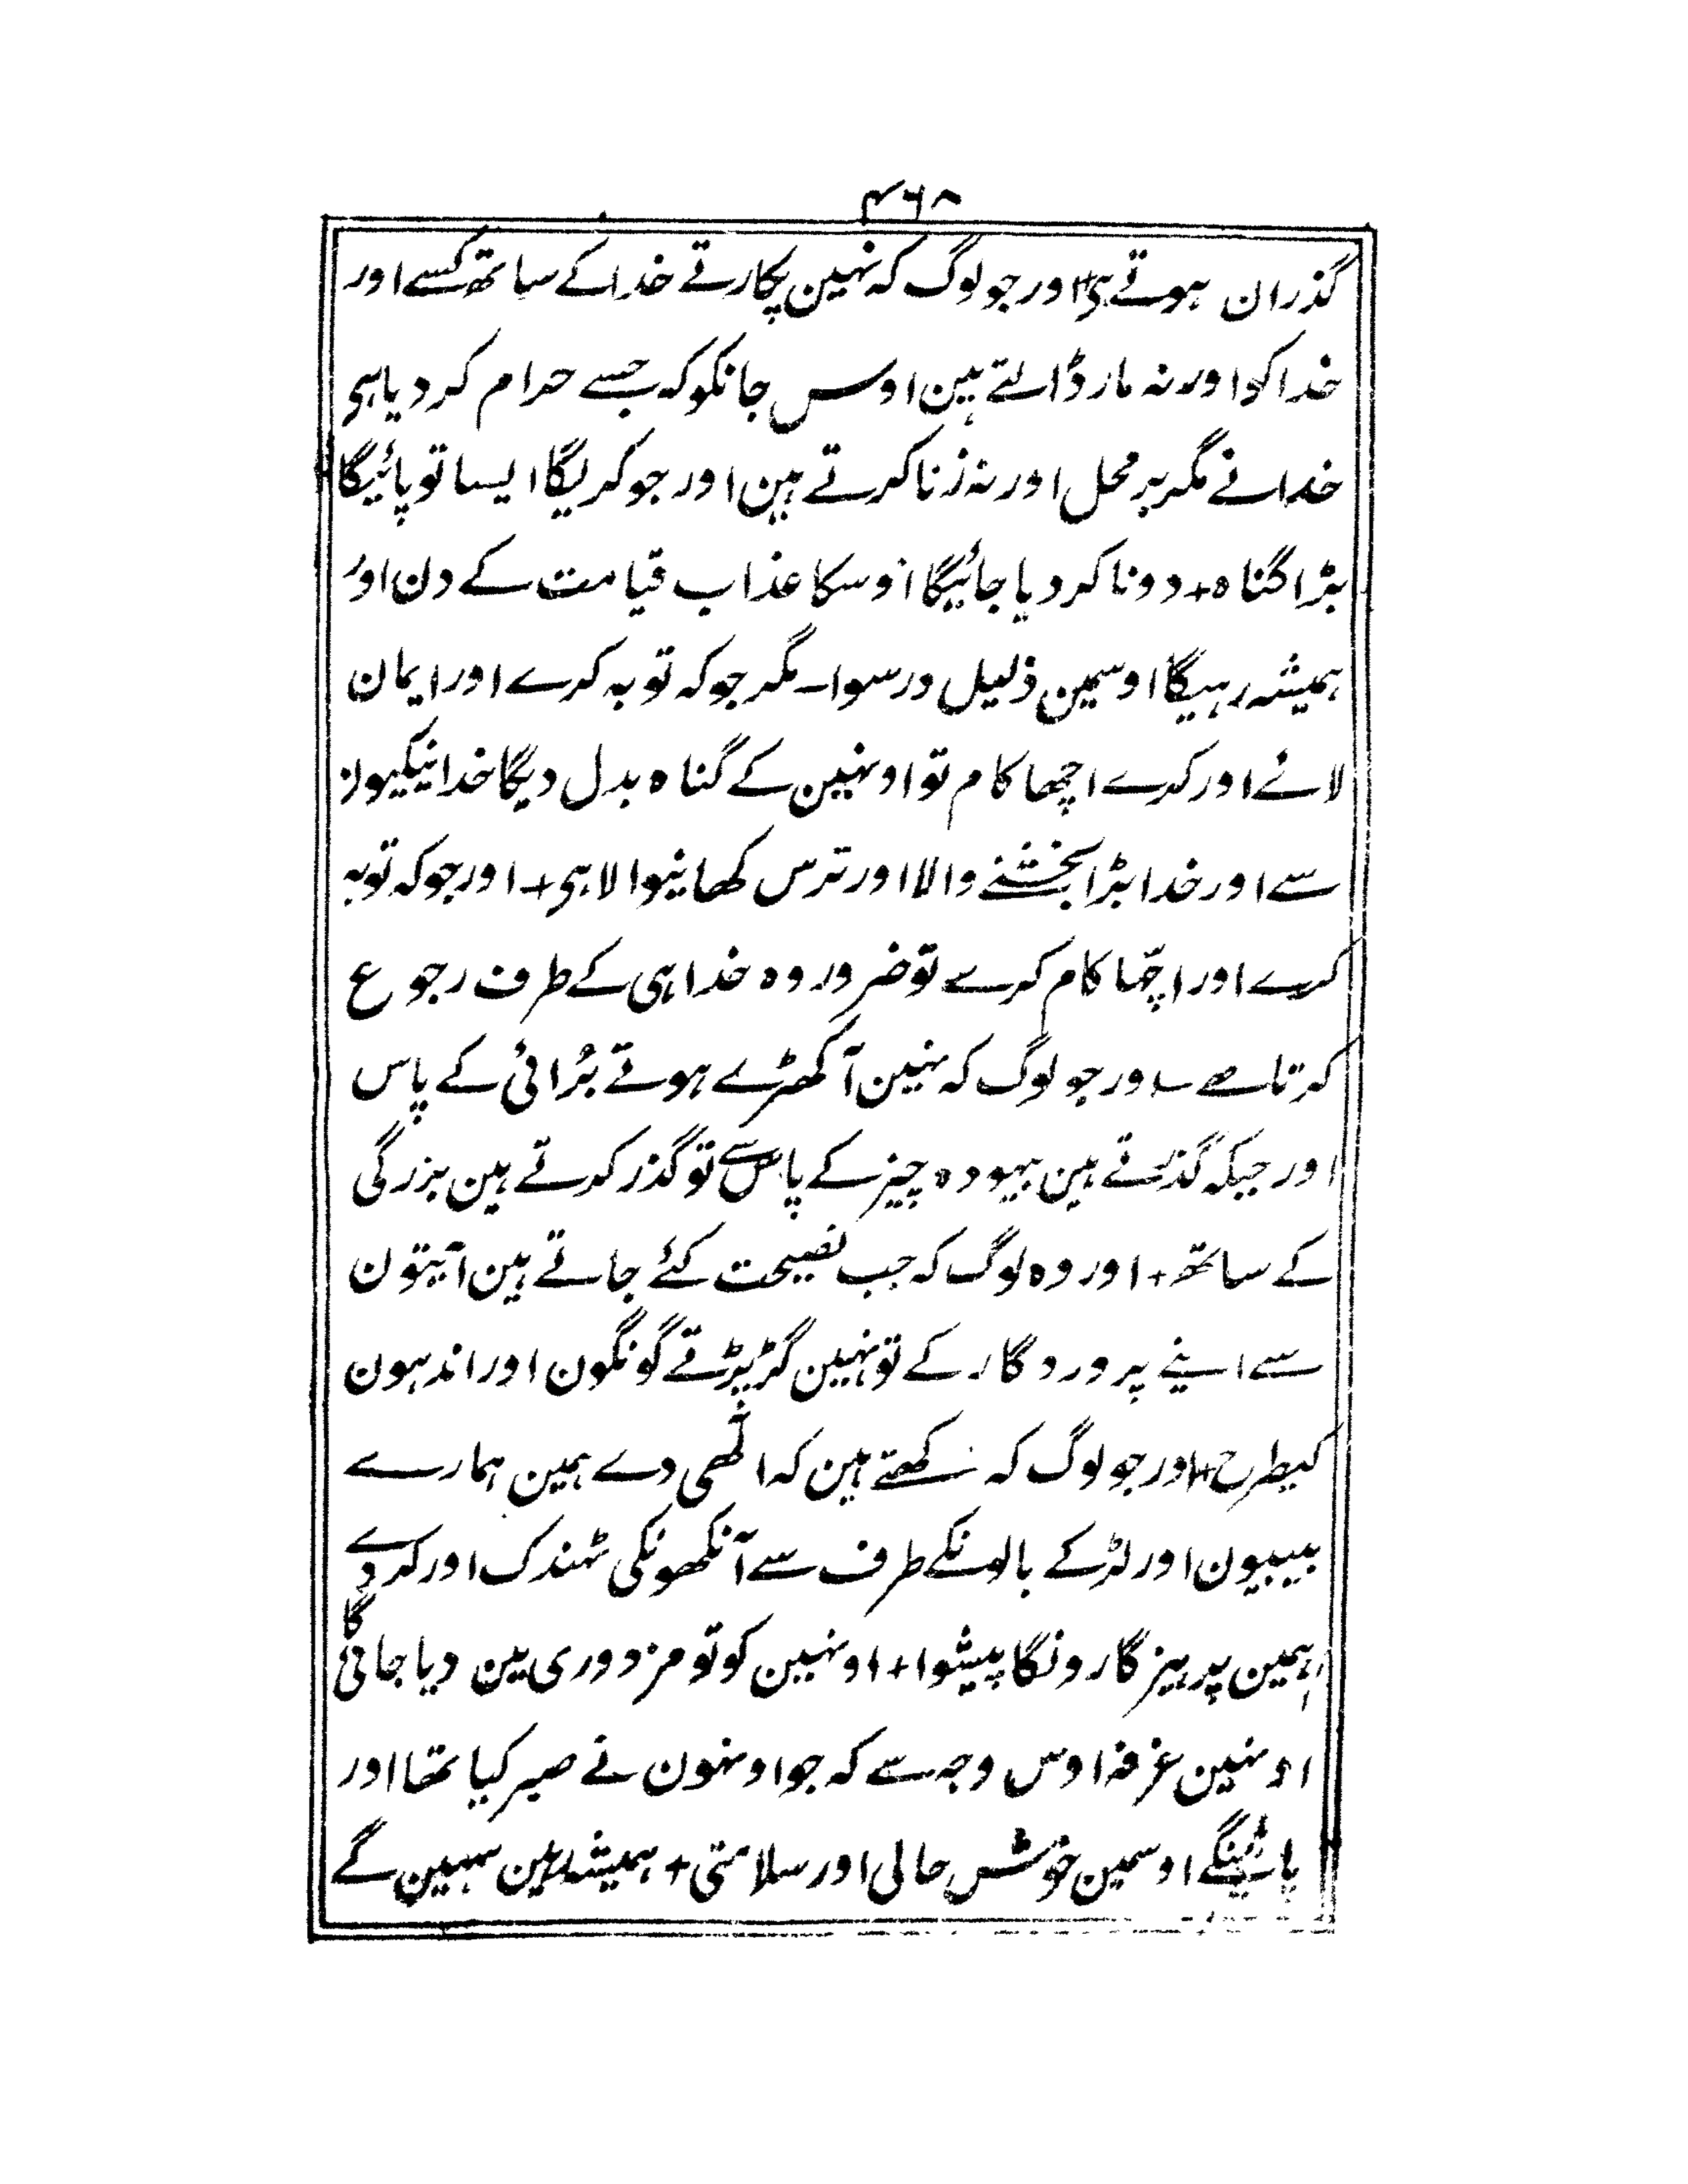 ۴۶۸
گذران ہوتے ہی+اور جو لوگ کہ نہین پکارتے خدا کے ساتھ کسے اور
خدا کو اور نہ مار ڈالتے ہین اوس جانکو کہ جسے حرام کر دیا ہی
خدا نے مگر بر محل اور نہ زنا کرتے ہین اور جو کریگا ایسا تو پائیگا
بڑا گناہ+دونا کر دیا جائیگا اوسکا عذاب قیامت کے دن اور
ہمیشہ رہیگا اوسمین ذلیل ورسوا۔مگر جو کہ توبہ کرے اور ایمان
لائے اور کرے اچھا کام تو اونہین کے گناہ بدل دیگا خدا نیکیون
سے اور خدا بڑا بخشنے والا اور ترس کھانیوالا ہی+اور جو کہ توبہ
کرے اور اچّہا کام کرے تو ضرور وہ خدا ہی کے طرف رجوع
کرتا ہے۔اور جو لوگ کہ نہین آکھڑے ہوتے بُرائی کے پاس
اور جبکہ گذرتے ہین بیہودہ چیز کے پاس سے تو گذر کرتے ہین بزرگی
کے ساتھ+اور وہ لوگ کہ جب نصیحت کئے جاتے ہین آیتون
سے اپنے پروردگار کے تو نہین گڑپڑتے گونگون اور اندہون
کیطرح+اور جو لوگ کہ کہتے ہین کہ الٰھی دے ہمین ہمارے
بیبیون اور لڑکے بالونکے طرف سے آنکھونکی ٹہندک اور کردے
ہمین پرہیزگارونکا پیشوا+اونہین کو تو مزدوری مین دیا جائیگا
اونہین غرفہ اوس وجہ سے کہ جو اونہون نے صبر کیا تھا اور
پائینگے اوسمین خوش حالی اور سلامتی+ہمیشہ اوسمین رہین گے